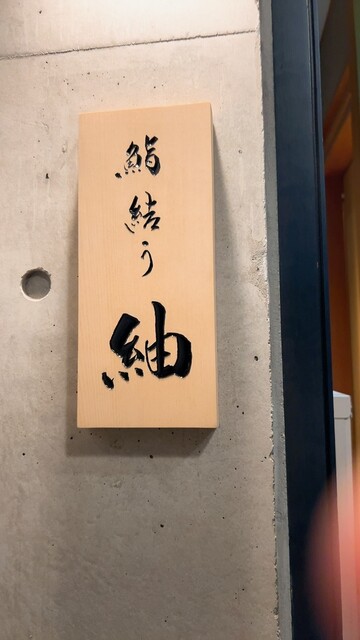 鮨
結
う
紬